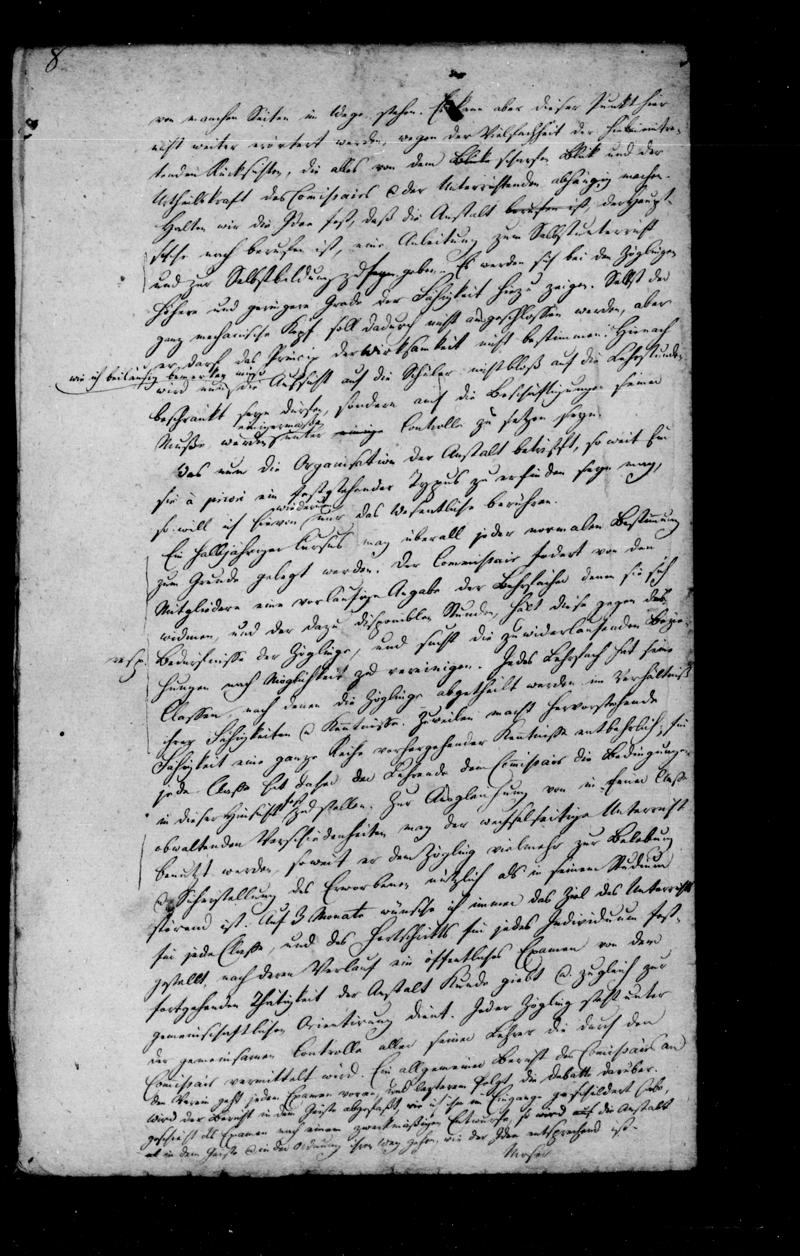 8
von manchen Seiten im Wege stehn. Es kann aber dieser Punkt hier
nicht weiter erörtert werden, wegen der Vielfachheit der hierin eintre-
tenden Rücksichten, die alles von dem Blick scharfen Blick und der
Urtheilskraft des Comissairs & der Unterrichtenden abhängig machen.
Halten wir die Idee fest, daß die Anstalt berufen ist, der Haupt-
sache nach berufen ist, eine Anleitung zum Selbstunterricht
und zur Selbstbildung zu geben. Es werden sich bei den Zöglingen
höhere und geringere Grade der Fähigkeit hiezu zeigen. Selbst der
ganz mechanische Kopf soll dadurch nicht ausgeschlossen werden, aber
er darf das Princip der Wirksamkeit nicht bestimmen. Hienach
wie ich beiläufig bemerken muß
wird nun die Aufsicht auf die Schüler nicht bloß auf die Lehrstunden
beschränkt seyn dürfen, sondern auch die Beschäftigungen seiner
einigermaßen
Muße werden unter einige Controlle zu setzen seyn.
Was nun die Organisation der Anstalt betrifft, so weit für
sie à priori ein feststehender Typus zu erfinden seyn mag,
wiederum
so will ich hievon nur das Wesentliche berühren.
Ein halbjähriger Cursus mag überall jeder normalen Bestimmung
zum Grunde gelegt werden. Der Commissair fodert von den
Mitgliedern eine vorläufige Angabe der Lehrfächer denen sie sich
widmen, und der dazu disponiblen Stunden, hält diese gegen das
resp.
Bedürfnisse der Zöglinge, und sucht die zuwiderlaufenden Bezie-
hungen nach Möglichkeit zu vereinigen. Jedes Lehrfach hat seine
Classen, nach denen die Zöglinge abgetheilt werden im Verhältniß
ihrer Fähigkeiten & Kenntnisse. Zuweilen macht hervorstehende
Fähigkeit eine ganze Reihe vorhergehender Kenntnisse entbehrlich; für
jede Classe hat daher der Lehrende dem Comissair die Bedingungen
in dieser Hinsicht fest zu stellen. Zur Ausgleichung von in einer Classe
obwaltenden Verschiedenheiten mag der wechselseitige Unterricht
benutzt werden, soweit er dem Zögling vielmehr zur Belebung
& Sicherstellung des Erworbenen nützlich als in seinem Studium
störend ist. Auf 3 Monate wünsche ich immer das Ziel des Unterrichts
für jede Classe, und des Fortschritts für jedes Individuum fest-
gestellt, nach deren Verlauf ein öffentliches Examen von der
fortgehenden Thätigkeit der Anstalt Kunde giebt & zugleich zur
gemeinschaftlichen Orientirung dient. Jeder Zögling steht unter
der gemeinsamen Controlle aller seiner Lehrer die durch den
Comissair vermittelt wird. Ein allgemeiner Bericht des Comissairs an
den Verein geht jedem Examen voran, und letzterem folgt die Debatte darüber.
Wird der Bericht in dem Geiste abgefaßt, wie ich ihn im Eingange geschildert habe,
geschieht das Examen nach einem zweckmäßigen Entwurfe, so wird die Anstalt
in dem Geiste & in der Ordnung ihren Weg gehen, wie der Idee entsprechend ist.
Moser